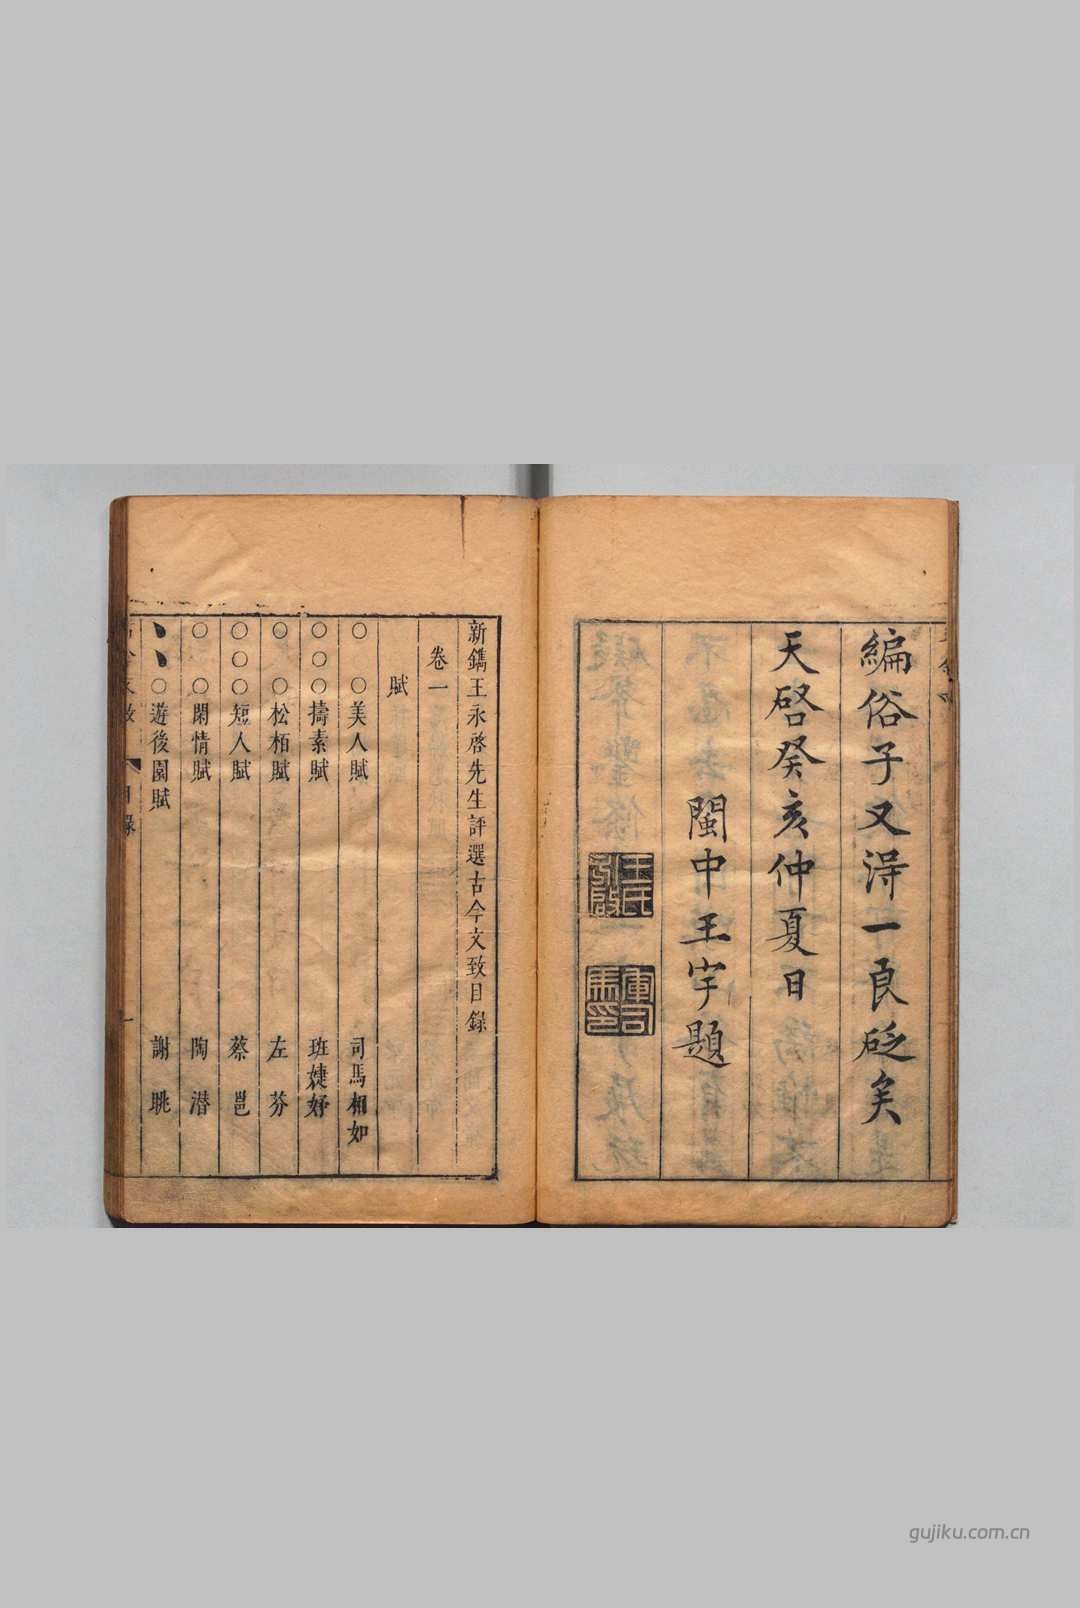 編俗子又淂一良砭矣
天啓癸亥仲夏日
閩中王宇題
王氏永啟
軍司馬印
新鐫王永啓先生評選古今文致目錄
卷一
賦
○ ○美人賦 司馬相如
○○○擣素賦 班婕妤
○ ○松柏賦 左芬
○○○短人賦 蔡邕
○ ○閑情賦 陶潜
、、○遊後園賦 謝朓
目錄 一
gujiku.com.cn